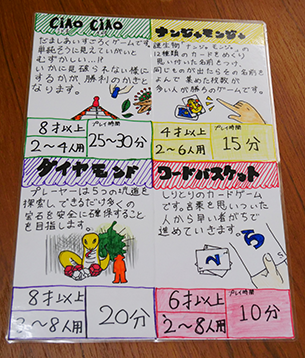 CIAO CIAO
だましあいすごろくゲームです。
単純そうに見えていがいと
むずかしい…!?
いかに見破られない様に
するかが、勝利のカギと
なります。
8才以上
2~4人用
プレイ時間
25~30分
ナンジャモンジャ
謎生物"ナンジャモンジャ"の
12種類のカードをめくり
見い付いた名前をつけ、
同じものが出たらその名前を
よんで集めた枚数が
多い人が勝ちのゲームです。
4才以上
2~6人用
プレイ時間
15分
ダイヤモンド
プレーヤーは5つの坑道を
探索し、できるだけ多くの
宝石を安全に確保すること
を目指します。
8才以上
2~8人用
20分
ワードバスケット
しりとりのカードゲーム
です。言葉を思いついた
人から早い者がちで
進めていきます。
6才以上
2~8人用
プレイ時間
10分